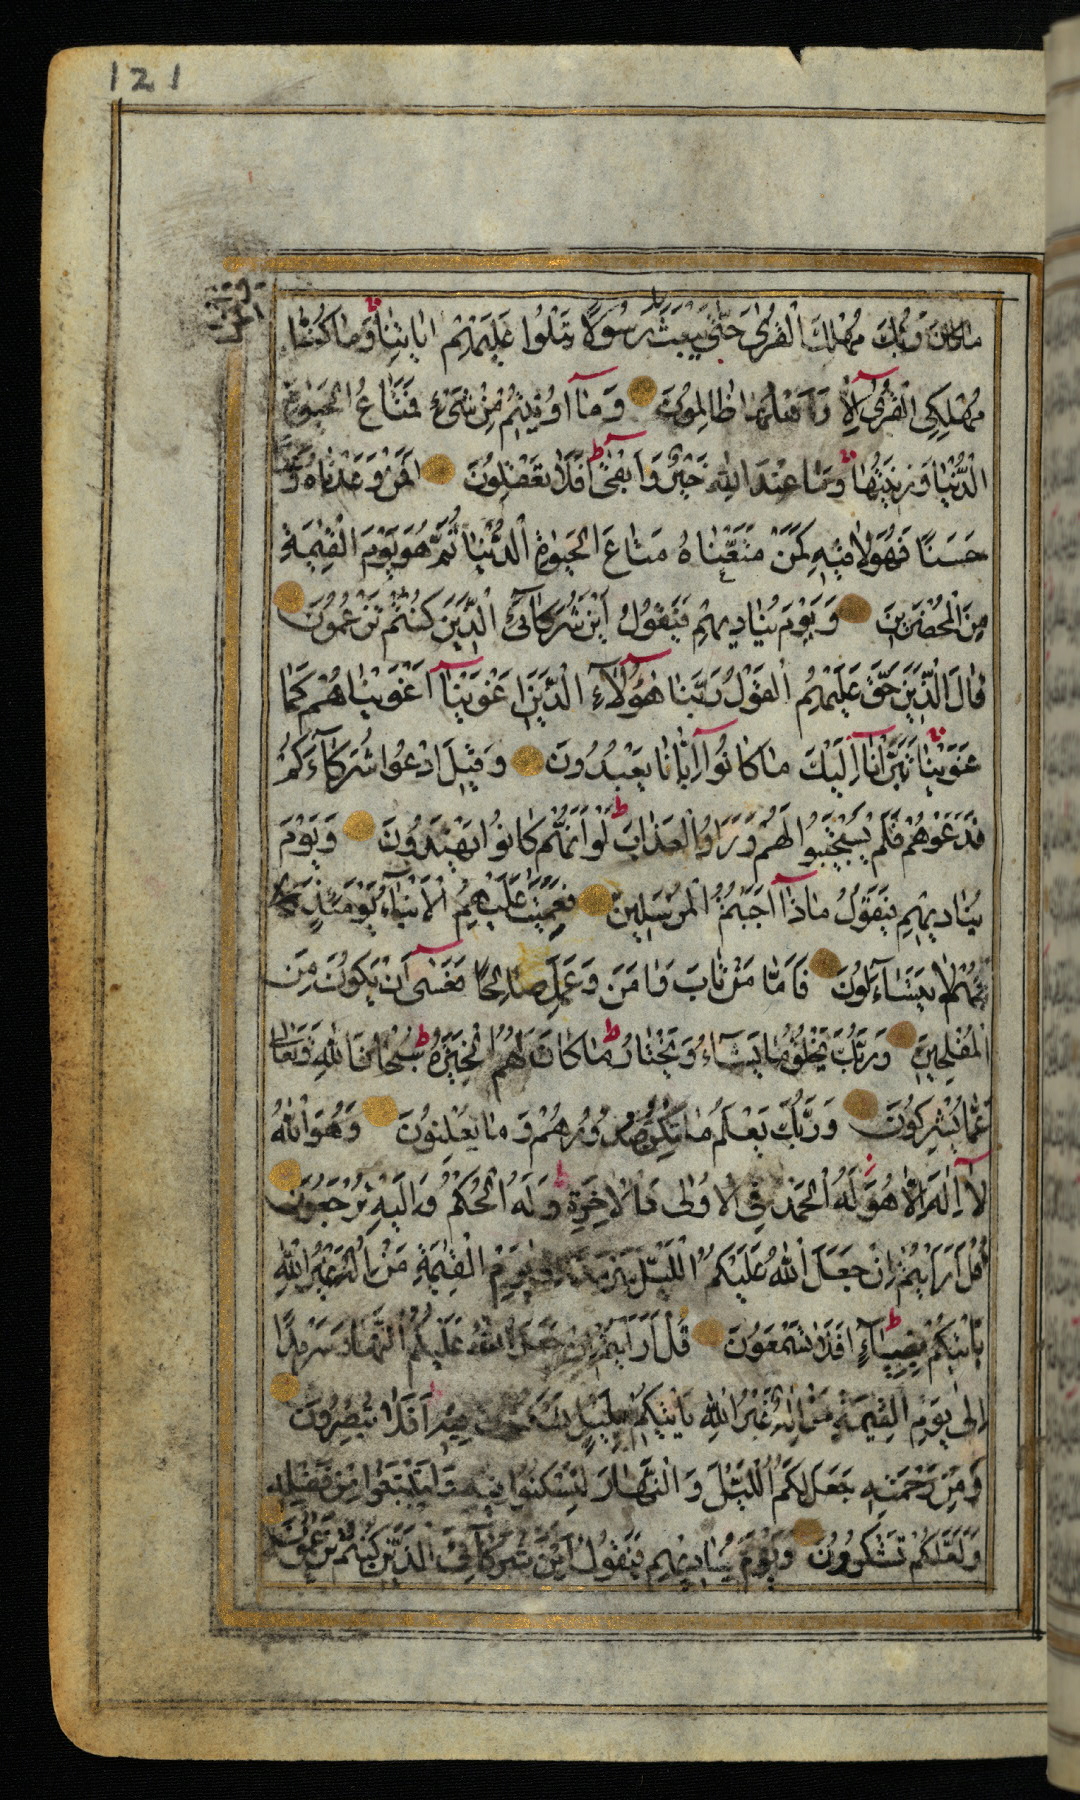 121
كان ربك مهلك القرى حتى يبعث رسولا يتلوا عليهم اياتنا وما كنا
مهلكي القرى الا واهلها ظالمون وما اوتيتم من شيء فمتاع الحيوة
الدنيا وزينتها وما عند الله خير وابقى افلا تعقلون افمن وعدناه وعدا
حسنا فهو لاقيه كمن متعناه متاع الحيوة الدنيا ثم هو يوم القيمة
من المحضرين ويوم يناديهم فيقول اين شركائي الذين كنتم تزعمون
قال الذين حق عليهم القول ربنا هؤلاء الذين اغوينا اغويناهم كما
غوينا تبرأنا اليك ما كانوا ايانا يعبدون وقيل ادعوا شركاءكم
فدعوهم فلم يستجيبوا لهم وراوا العذاب لو انهم كانوا يهتدون ويوم
يناديهم فيقول ماذا اجبتم المرسلين فعميت عليهم الانباء يومئذ
فهم لا يتساءلون فاما من تاب وامن وعمل صالحا فعسى ان يكون من
المفلحين وربك يخلق ما يشاء ويختار ما كان لهم الخيرة سبحان الله وتعالى
عما يشركون وربك يعلم ما تكن صدورهم وما يعلنون وهو الله
لا اله الا هو له الحمد في الاولى والاخرة وله الحكم واليه ترجعون
قل ارايتم ان جعل الله عليكم الليل سرمدا الى يوم القيمة من اله غير الله
ياتيكم بضياء افلا تسمعون قل ارايتم ان جعل الله عليكم النهار سرمدا
الى يوم القيمة من اله غير الله ياتيكم بليل تسكنون فيه افلا تبصرون
ومن رحمته جعل لكم الليل والنهار لتسكنوا فيه ولتبتغوا من فضله
ولعلكم تشكرون ويوم يناديهم فيقول اين شركائي الذين كنتم تزعمون